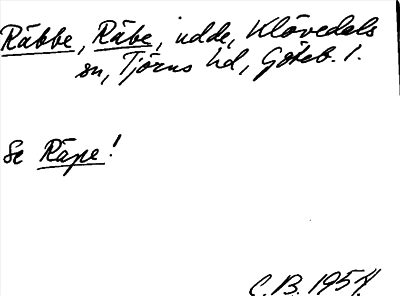 Råbbe, Råbe, udde, Klövedals
sn, Tjörns hd, Göteb. l.
Se Råpe!
C.B. 1954.